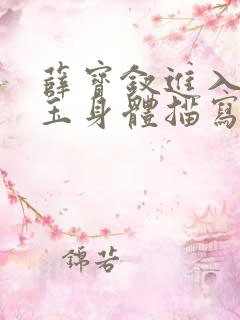 薛寶釵進入
玉身體描寫
錦若